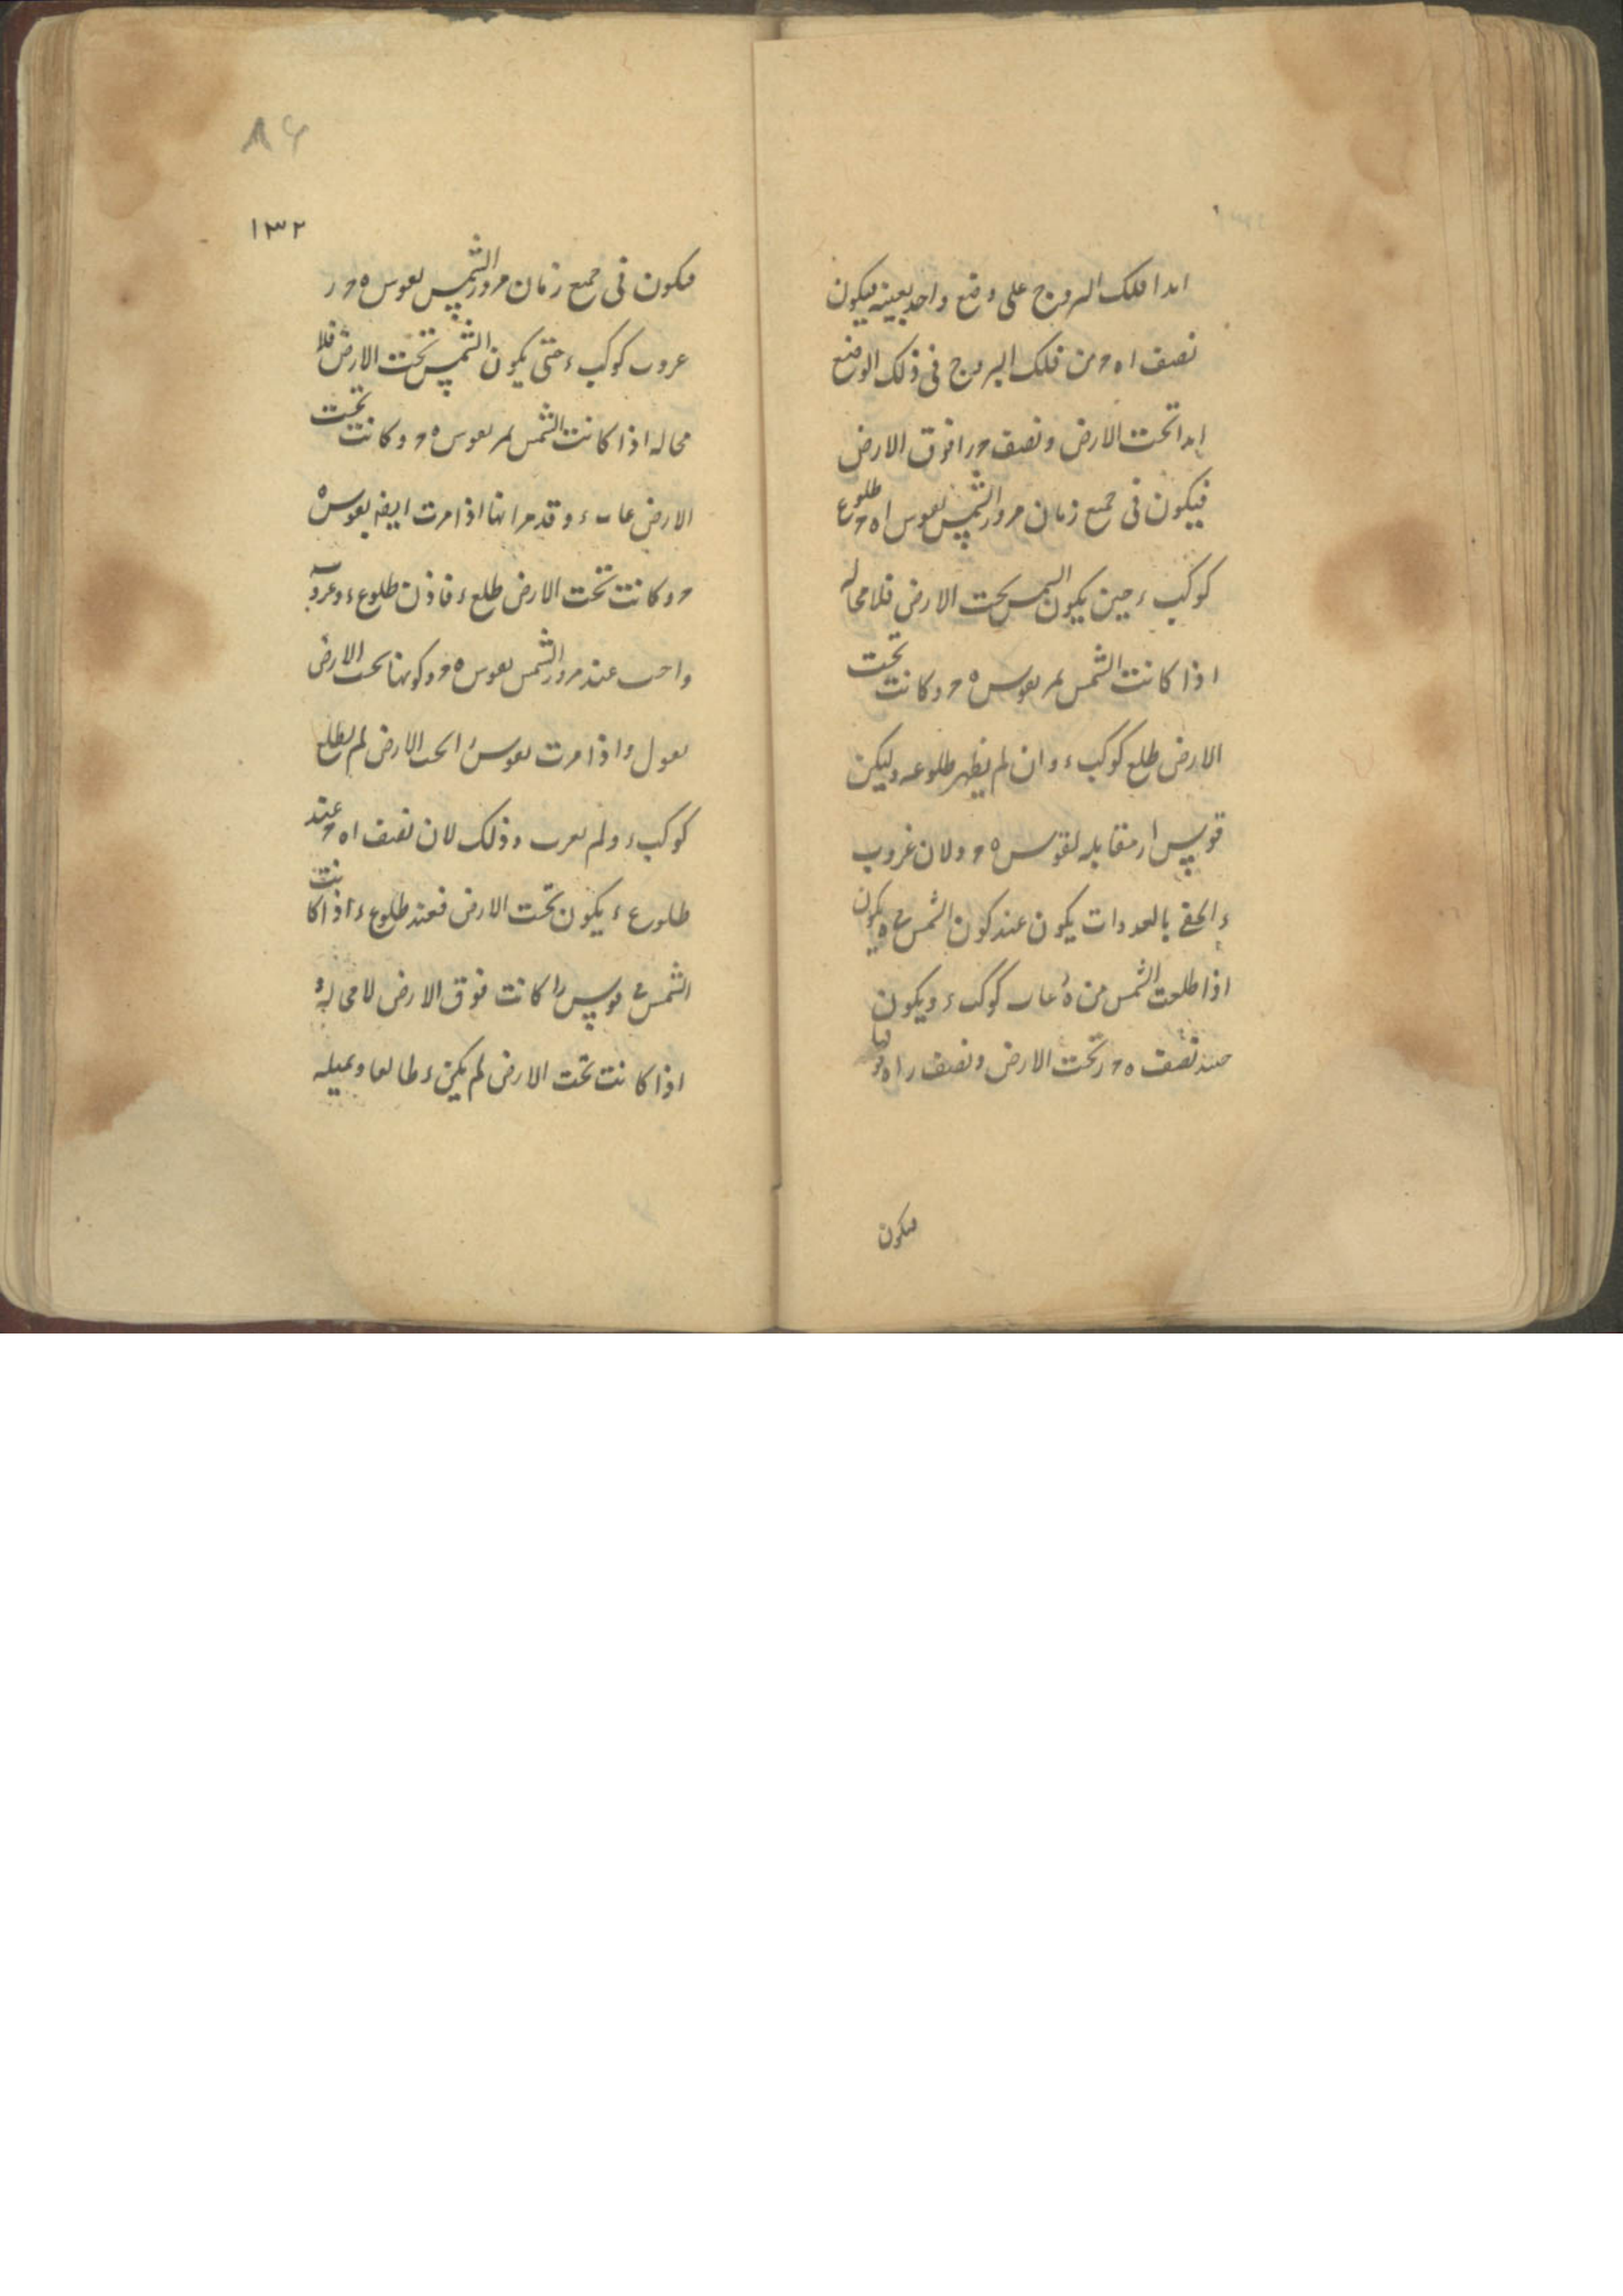 ابدا فلك البروج على وضع واحد بعينه فيكون
نصف ا ه ح من فلك البروج فى ذلك الوضع
ابدا تحت الارض ونصف ح ر ا فوق الارض
فيكون فى جميع زمان مرور الشمس بقوس ا ه ح طلوع
كوكب ء حين يكون الشمس تحت الارض فلا محاله
اذا كانت الشمس تمر بقوس ه ح وكانت تحت
الارض طلع كوكب ء وان لم يظهر طلوعه وليكن
قوس ا ر مقابله لقوس ه ح ولان غروب
ء الخفى بالغدوات يكون عند كون الشمس فى ه يكون
اذا طلعت الشمس من ه غاب كوكب ء ويكون
حينئذ نصف ه ح ر تحت الارض ونصف ر ا ه فوقها
فيكون
١٣٢
٨٦
فيكون فى جميع زمان مرور الشمس بقوس ه ح ر
غروب كوكب ء حتى يكون الشمس تحت الارض فلا
محاله اذا كانت الشمس تمر بقوس ه ح وكانت تحت
الارض غاب ء وقد مر انها اذا مرت ايضا بقوس ه
ح وكانت تحت الارض طلع ء فاذن طلوع ء وغروبه
واجب عند مرور الشمس بقوس ه ح وكونها تحت الارض
نقول واذا مرت بقوس ر ا تحت الارض لم يطلع
كوكب ء ولم يغرب وذلك لان نصف ا ه ح عند
طلوع ء يكون تحت الارض فعند طلوع ء اذا كانت
الشمس فى قوس ر ا كانت فوق الارض لا محاله و
اذا كانت تحت الارض لم يكن ء طالعا وبمثله